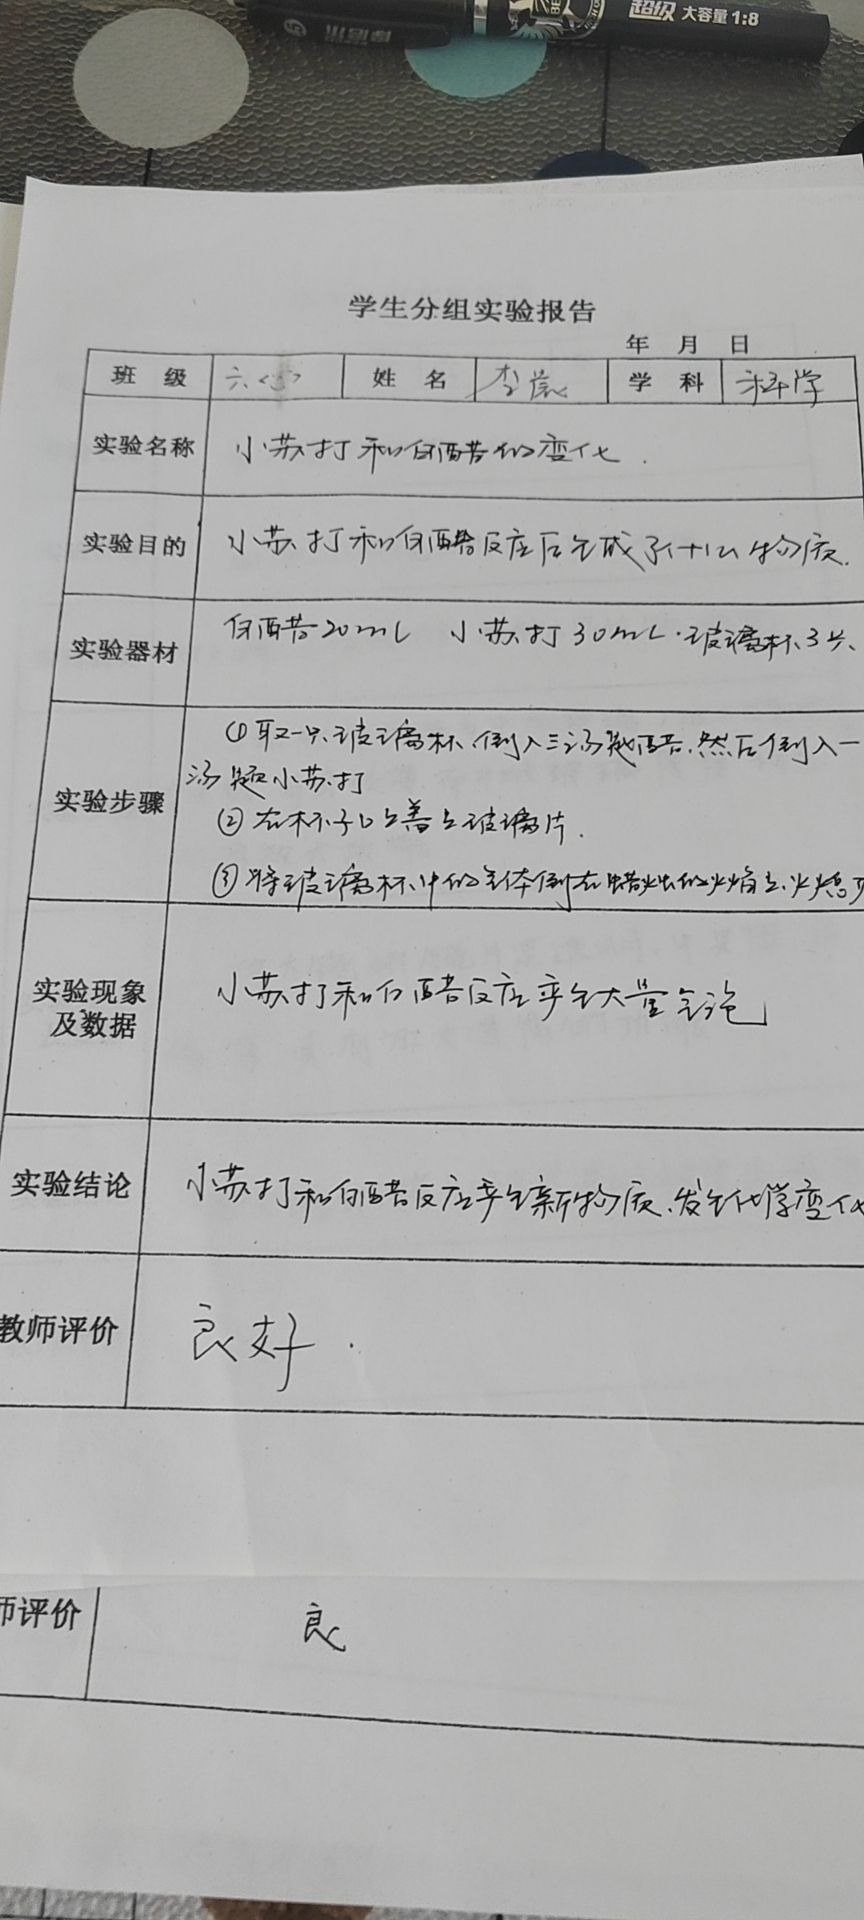 超级 大容量 1:8
学生分组实验报告
年 月 日
班 级 六 姓 名 李 学 科 科学
实验名称 小苏打和白醋的变化.
实验目的 小苏打和白醋反应后生成了什么物质.
实验器材 白醋20mL 小苏打30mL.玻璃杯3只、
①取一只玻璃杯,倒入三汤匙醋,然后倒入一
汤匙小苏打
实验步骤
②在杯子口上盖上玻璃片.
③将玻璃杯中的气体倒在蜡烛的火焰上,火熄灭
实验现象
及数据
小苏打和白醋反应产生大量气泡
实验结论 小苏打和白醋反应产生新物质,发生化学变化
教师评价 良好.
师评价 良